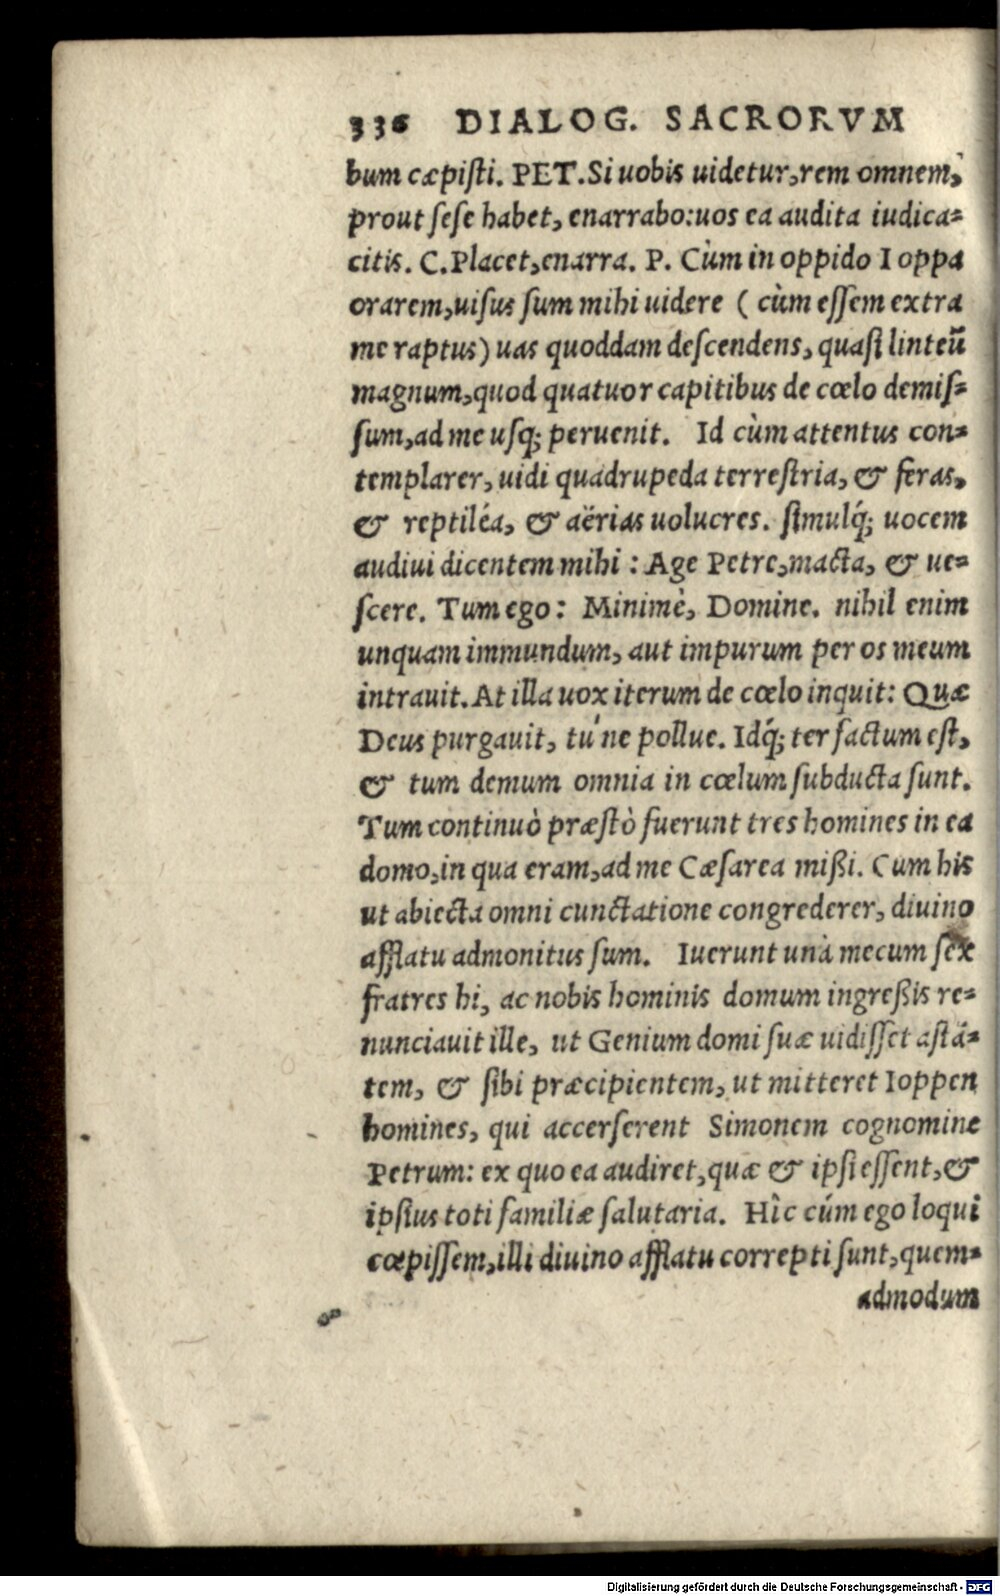 336 DIALOG. SACRORVM
bum cæpiſti. PET. Si uobis uidetur, rem omnem,
prout ſeſe habet, enarrabo: uos ea audita iudica=
citis. C. Placet, enarra. P. Cùm in oppido Ioppa
orarem, uiſus ſum mihi uidere ( cùm eſſem extra
me raptus) uas quoddam deſcendens, quaſi linteũ
magnum, quod quatuor capitibus de cœlo demiſ=
ſum, ad me uſq; peruenit. Id cùm attentus con=
templarer, uidi quadrupeda terreſtria, & feras,
& reptiléa, & aërias uolucres. ſimulq́; uocem
audiui dicentem mihi : Age Petre, macta, & ue=
ſcere. Tum ego : Minimè, Domine. nihil enim
unquam immundum, aut impurum per os meum
intrauit. At illa uox iterum de cœlo inquit: Quæ
Deus purgauit, tu ́ne pollue. Idq́; ter factum eſt,
& tum demum omnia in cœlum ſubducta ſunt.
Tum continuò præſtò fuerunt tres homines in ea
domo, in qua eram, ad me Cæſarea mißi. Cum his
ut abiecta omni cunctatione congrederer, diuino
afflatu admonitus ſum. Iuerunt unà mecum ſex
fratres hi, ac nobis hominis domum ingreßis re=
nunciauit ille, ut Genium domi ſuæ uidiſſet aſtã=
tem, & ſibi præcipientem, ut mitteret Ioppen
homines, qui accerſerent Simonem cognomine
Petrum: ex quo ea audiret, quæ & ipſi eſſent, &
ipſius toti familiæ ſalutaria. Hîc cúm ego loqui
cœpiſſem, illi diuino afflatu correpti ſunt, quem=
admodum
Digitalisierung gefördert durch die Deutsche Forschungsgemeinschaft - DFG